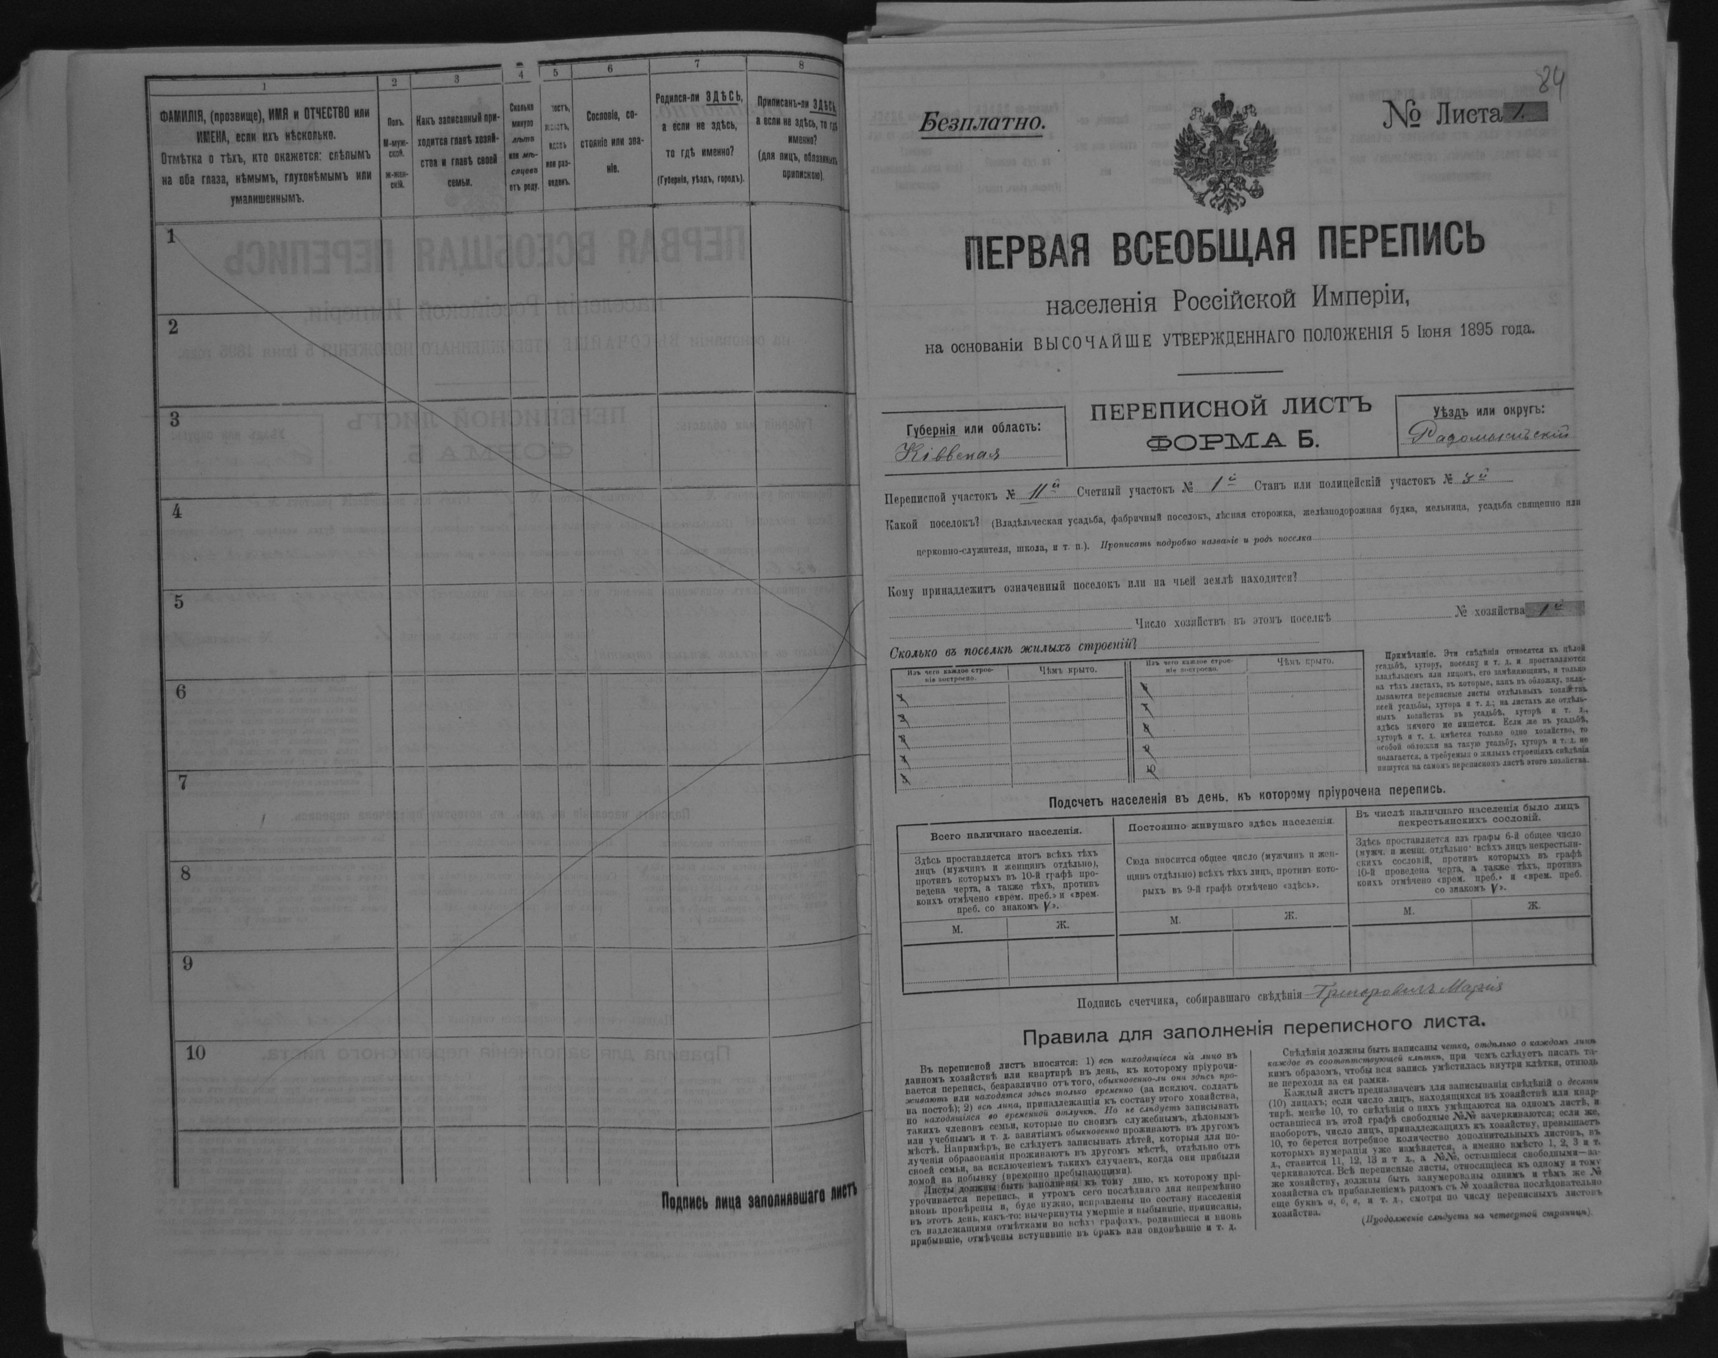 1
2
3
4
5
6
7
8
ФАМИЛІЯ, (прозвище), ИМЯ и ОТЧЕСТВО или
ИМЕНА, если ихъ нѣсколько.
Отмѣтка о тѣхъ, кто окажется: слѣпымъ
на оба глаза, нѣмымъ, глухонѣмымъ или
умалишеннымъ.
Полъ.
М-муж-
ской.
Ж-жен-
скій.
Какъ записанный при-
ходится главѣ хозяй-
ства и главѣ своей
семьи.
Сколько
минуло
лѣтъ
или мѣ-
сяцевъ
отъ роду.
вдовъ
или раз-
веденъ.
Сословіе, со-
стояніе или зва-
ніе.
Родился-ли ЗДѢСЬ,
а если не здѣсь,
то гдѣ именно?
(Губернія, уѣздъ, городъ).
Приписанъ-ли ЗДѢСЬ
а если не здѣсь, то гдѣ
именно?
(для лицъ, обязанныхъ
припискою).
1
2
3
4
5
6
7
8
9
10
Подпись лица заполнявшаго листъ
84
Безплатно.
№ Листа 1.
ПЕРВАЯ ВСЕОБЩАЯ ПЕРЕПИСЬ
населенія Россійской Имперіи,
на основаніи ВЫСОЧАЙШЕ УТВЕРЖДЕННАГО ПОЛОЖЕНІЯ 5 Іюня 1895 года.
Губернія или область:
Кіевская
ПЕРЕПИСНОЙ ЛИСТЪ
ФОРМА Б.
Уѣздъ или округъ:
Радомысльскій
Переписной участокъ № 11й Счетный участокъ № 1й Станъ или полицейскій участокъ № 3й
Какой поселокъ? (Владѣльческая усадьба, фабричный поселокъ, лѣсная сторожка, желѣзнодорожная будка, мельница, усадьба священно или
церковно-служителя, школа, и т. п.). Прописать подробно названіе и родъ поселка
Кому принадлежитъ означенный поселокъ или на чьей землѣ находится?
Число хозяйствъ въ этомъ поселкѣ № хозяйства 1й
Сколько въ поселкѣ жилыхъ строеній?
Изъ чего каждое строе-
ніе построено.
Чѣмъ крыто.
1
2
3
4
5
Изъ чего каждое строе-
ніе построено.
Чѣмъ крыто.
6
7
8
9
10
Примѣчаніе. Эти свѣдѣнія относятся къ цѣлой
усадьбѣ, хутору, поселку и т. д. и проставляются
владѣльцемъ или лицомъ, его замѣняющимъ, и только
на тѣхъ листахъ, въ которые, какъ въ обложку, вкла-
дываются переписные листы отдѣльныхъ хозяйствъ
всей усадьбы, хутора и т. д.; на листахъ же отдѣль-
ныхъ хозяйствъ въ усадьбѣ, хуторѣ и т. д.,
здѣсь ничего не пишется. Если же въ усадьбѣ,
хуторѣ и т. д. имѣется только одно хозяйство, то
особой обложки на такую усадьбу, хуторъ и т. д. не
полагается, а требуемыя о жилыхъ строеніяхъ свѣдѣнія
пишутся на самомъ переписномъ листѣ этого хозяйства.
Подсчетъ населенія въ день, къ которому пріурочена перепись.
Всего наличнаго населенія.
Здѣсь проставляется итогъ всѣхъ тѣхъ
лицъ (мужчинъ и женщинъ отдѣльно),
противъ которыхъ въ 10-й графѣ про-
ведена черта, а также тѣхъ, противъ
коихъ отмѣчено «врем. преб.» и «врем.
преб. со знакомъ V».
М.
Ж.
Постоянно живущаго здѣсь населенія.
Сюда вносится общее число (мужчинъ и жен-
щинъ отдѣльно) всѣхъ тѣхъ лицъ, противъ кото-
рыхъ въ 9-й графѣ отмѣчено «здѣсь».
М.
Ж.
Въ числѣ наличнаго населенія было лицъ
некрестьянскихъ сословій.
Здѣсь проставляется изъ графы 6-й общее число
(мужч. и женщ. отдѣльно) всѣхъ лицъ некрестьян-
скихъ сословій, противъ которыхъ въ графѣ
10-й проведена черта, а также тѣхъ, противъ
коихъ отмѣчено «врем. преб.» и «врем. преб.
со знакомъ V».
М.
Ж.
Подпись счетчика, собиравшаго свѣдѣнія Григоровичъ
Правила для заполненія переписного листа.
Въ переписной листъ вносится: 1) всѣ находящіеся на лицо въ
данномъ хозяйствѣ или квартирѣ въ день, къ которому пріурочи-
вается перепись, безразлично отъ того, обыкновенно-ли они здѣсь про-
живаютъ или находятся здѣсь только временно (за исключ. солдатъ
на постоѣ); 2) всѣ лица, принадлежащія къ составу этого хозяйства,
но находящіяся во временной отлучкѣ. Но не слѣдуетъ записывать
такихъ членовъ семьи, которые по своимъ служебнымъ, дѣловымъ
или учебнымъ и т. д. занятіямъ обыкновенно проживаютъ въ другомъ
мѣстѣ. Напримѣръ, не слѣдуетъ записывать дѣтей, которыя для по-
лученія образованія проживаютъ въ другомъ мѣстѣ, отдѣльно отъ
своей семьи, за исключеніемъ такихъ случаевъ, когда они прибыли
домой на побывку (временно пребывающими).
Листы должны быть заполнены къ тому дню, къ которому прі-
урочивается перепись, и утромъ сего послѣдняго дня непремѣнно
вновь провѣрены и, буде нужно, исправлены по составу населенія
въ этотъ день, какъ-то: вычеркнуты умершіе и выбывшіе, приписаны,
съ надлежащими отмѣтками во всѣхъ графахъ, родившіеся и вновь
прибывшіе, отмѣчены вступившіе въ бракъ или овдовѣвшіе и т. д.
Свѣдѣнія должны быть написаны четко, отдѣльно о каждомъ лицѣ
каждое въ соотвѣтствующей клѣткѣ, при чемъ слѣдуетъ писать та-
кимъ образомъ, чтобы вся запись умѣстилась внутри клѣтки, отнюдь
не переходя за ея рамки.
Каждый листъ предназначенъ для записыванія свѣдѣній о десяти
(10) лицахъ; если число лицъ, находящихся въ хозяйствѣ или квар-
тирѣ, менѣе 10, то свѣдѣнія о нихъ умѣщаются на одномъ листѣ, и
оставшіеся въ этой графѣ свободные №№ зачеркиваются; если же,
наоборотъ, число лицъ, принадлежащихъ къ хозяйству, превышаетъ
10, то берется потребное количество дополнительныхъ листовъ, въ
которыхъ нумерація уже измѣняется, а именно вмѣсто 1, 2, 3 и т.
д., ставится 11, 12, 13 и т. д., а №№, оставшіеся свободными—за-
черкиваются. Всѣ переписные листы, относящіеся къ одному и тому
же хозяйству, должны быть занумерованы однимъ и тѣмъ же №
хозяйства съ прибавленіемъ рядомъ съ № хозяйства послѣдовательно
еще буквъ а, б, в, и т. д., смотря по числу переписныхъ листовъ
хозяйства.
(Продолженіе слѣдуетъ на четвертой страницѣ).